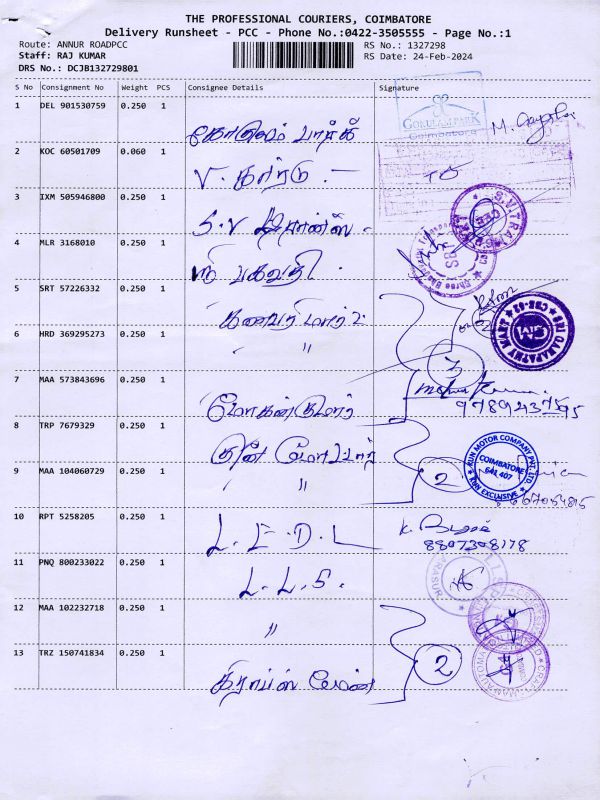 THE PROFESSIONAL COURIERS, COIMBATORE
Delivery Runsheet - PCC - Phone No.:0422-3505555 - Page No.:1
Route: ANNUR ROADPCC
RS No.: 1327298
Staff: RAJ KUMAR
RS Date: 24-Feb-2024
DRS No.: DCJB132729801
S No Consignment No Weight PCS Consignee Details Signature
1 DEL 901530759 0.250 1
GOKULAM PARK
Coimbatore
கோகுலம் பார்க்
2 KOC 60501709 0.060 1
V. கார்டு . -
3 IXM 505946800 0.250 1
S.V டிரான்ஸ் .
4 MLR 3168010 0.250 1
ஸ்ரீ பகவதி .
5 SRT 57226332 0.250 1
கணபதி மார்ட்
SRI GANAPATHY MART
6 HRD 369295273 0.250 1
"
3
7 MAA 573843696 0.250 1
மோகன்குமார்
Mohan Kumar
97892437595
8 TRP 7679329 0.250 1
குன் மோட்டார்
KUN MOTOR COMPANY PVT. LTD
COIMBATORE
641 407
KUN EXCLUSIVE
9 MAA 104060729 0.250 1
"
2
10 RPT 5258205 0.250 1
L. E. D. L
8807308178
11 PNQ 800233022 0.250 1
L. L. S.
12 MAA 102232718 0.250 1
"
13 TRZ 150741834 0.250 1
2
கிராப்ஸ் மேன்